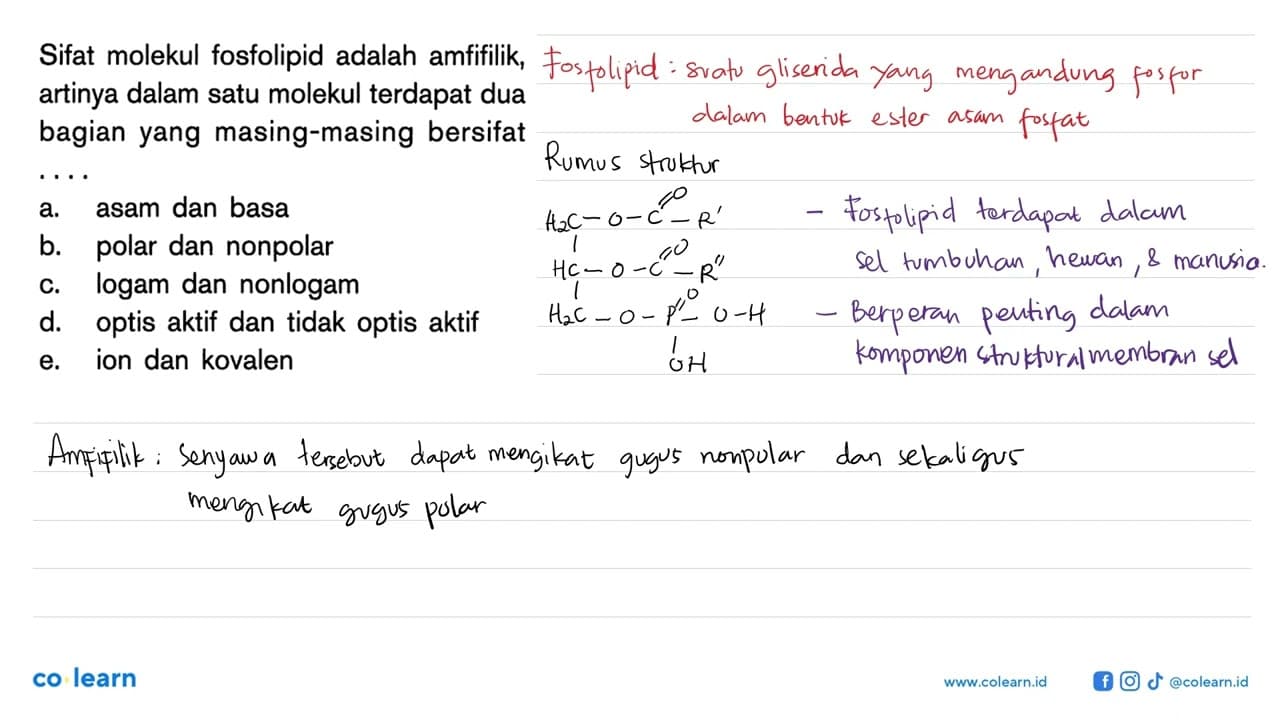 Sifat molekul fosfolipid adalah amfifilik,
artinya dalam satu molekul terdapat dua
bagian yang masing-masing bersifat
....
a. asam dan basa
b. polar dan nonpolar
c. logam dan nonlogam
d. optis aktif dan tidak optis aktif
e. ion dan kovalen
Fosfolipid : suatu gliserida yang mengandung fosfor
dalam bentuk ester asam fosfat
Rumus struktur
H2C - O - C = O - R'
|
HC - O - C = O - R"
|
H2C - O - P = O - O - H
|
OH
- Fosfolipid terdapat dalam
sel tumbuhan, hewan, & manusia.
- Berperan penting dalam
komponen struktural membran sel
Amfifilik : Senyawa tersebut dapat mengikat gugus nonpolar dan sekaligus
mengikat gugus polar
co learn
www.colearn.id
@colearn.id